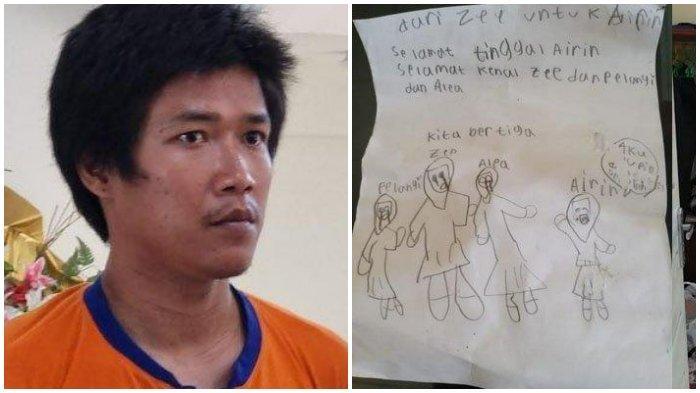 dari Zee untuk Airin
Selamat tinggal Airin
Selamat kenal Zee dan Pelangi
dan Alea
kita bertiga
Zee
Alea
Pelangi
Airin
Aku